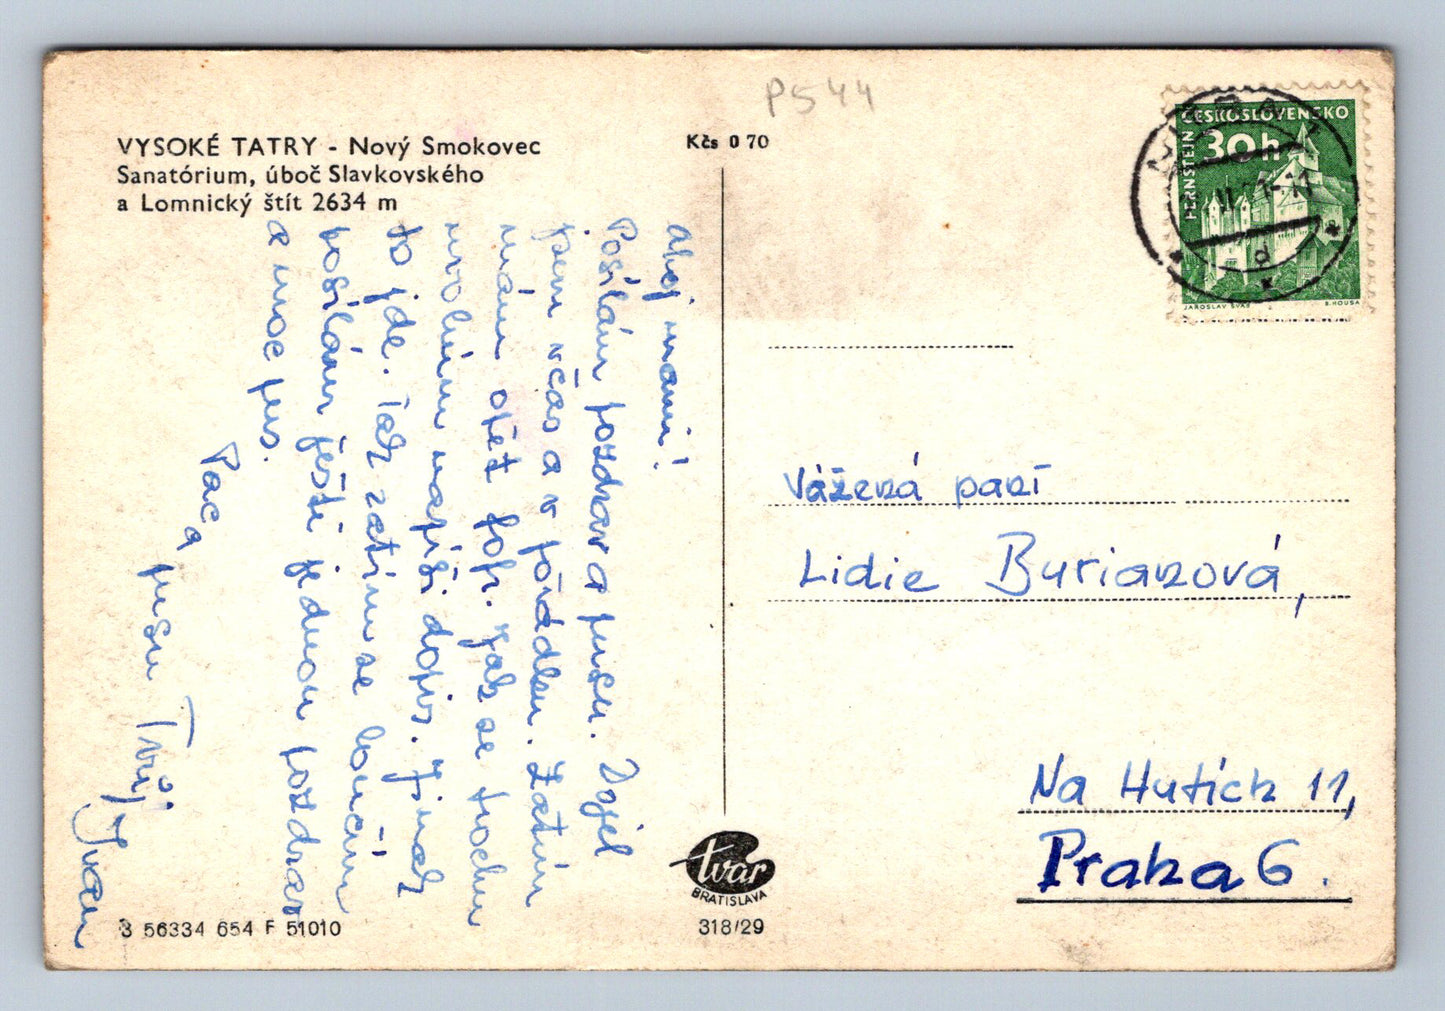 VYSOKÉ TATRY - Nový Smokovec
Sanatórium, úboč Slavkovského
a Lomnický štít 2634 m
Kčs 0 70
P544
ČESKOSLOVENSKO
30h
PERNŠTEJN
JAROSLAV ŠVÁB
B. HOUSA
Ahoj mami!
Posílám pozdrav a pusu. Dojel
jsem včas a v pořádku. Zatím
mám opět Jak se trochu
uvolním napíši dopis. Jinak
to jde. Tak zatím se loučím
posílám ještě jednou pozdrav
a moc pus.
Pac a
pusu Tvůj
Ivan
Vážená paní
Lidie Burianová,
Na Hutích 11,
Praha 6.
tvar
BRATISLAVA
318/29
3 56334 654 F 51010